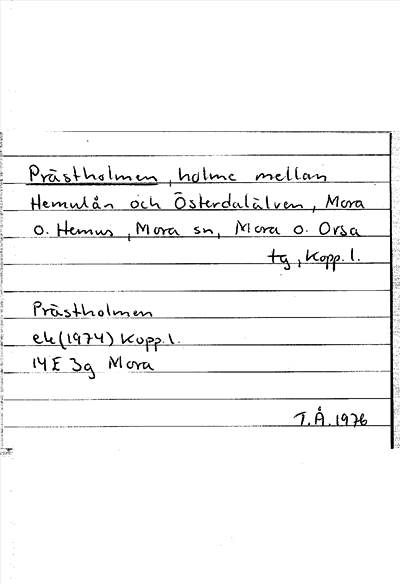 Prästholmen, holme mellan
Hemulån och Österdalälven, Mora
o. Hemus, Mora sn, Mora o. Orsa
tg, Kopp. l.
Prästholmen
ek (1974) Kopp. l.
14E 3g Mora
T.Å. 1976